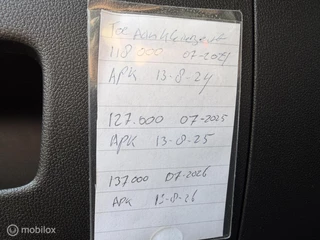 118.000 07-2024
APK 13-8-24
127.000 07-2025
APK 13-8-25
137000 07-2026
APK 13-8-26
mobilox